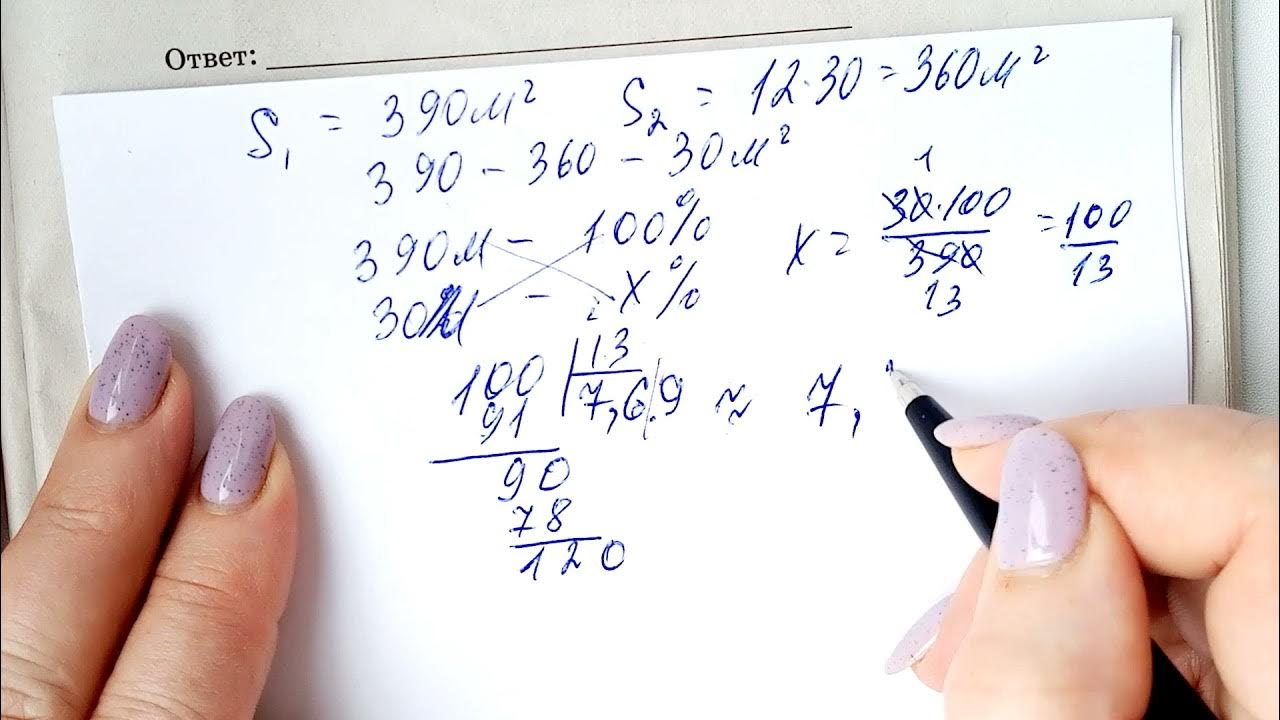 Ответ:
S₁ = 390м² S₂ = 12·30 = 360м²
390 – 360 – 30м²
390м – 100%
30 – x%
x = 30·100 / 390 = 100 / 13
1
13
100 | 13
91 7,69 ≈ 7,
90
78
120